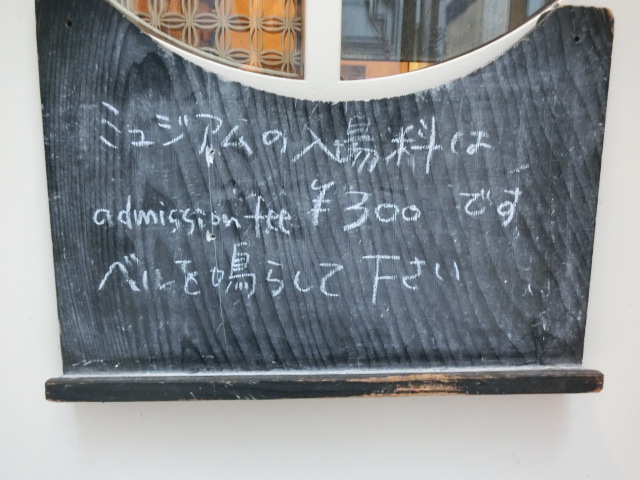 ミュジアムの入場料は
admission fee ¥300 です
ベルを鳴らして下さい